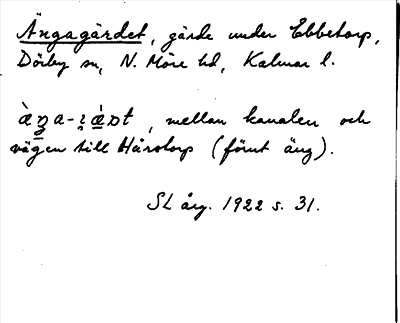 Ängagärdet, gärde under Ebbetorp,
Dörby sn, N. Möre hd, Kalmar l.
mellan kanalen och
vägen till Hårstorp (förut äng).
SL årg. 1922 s. 31.